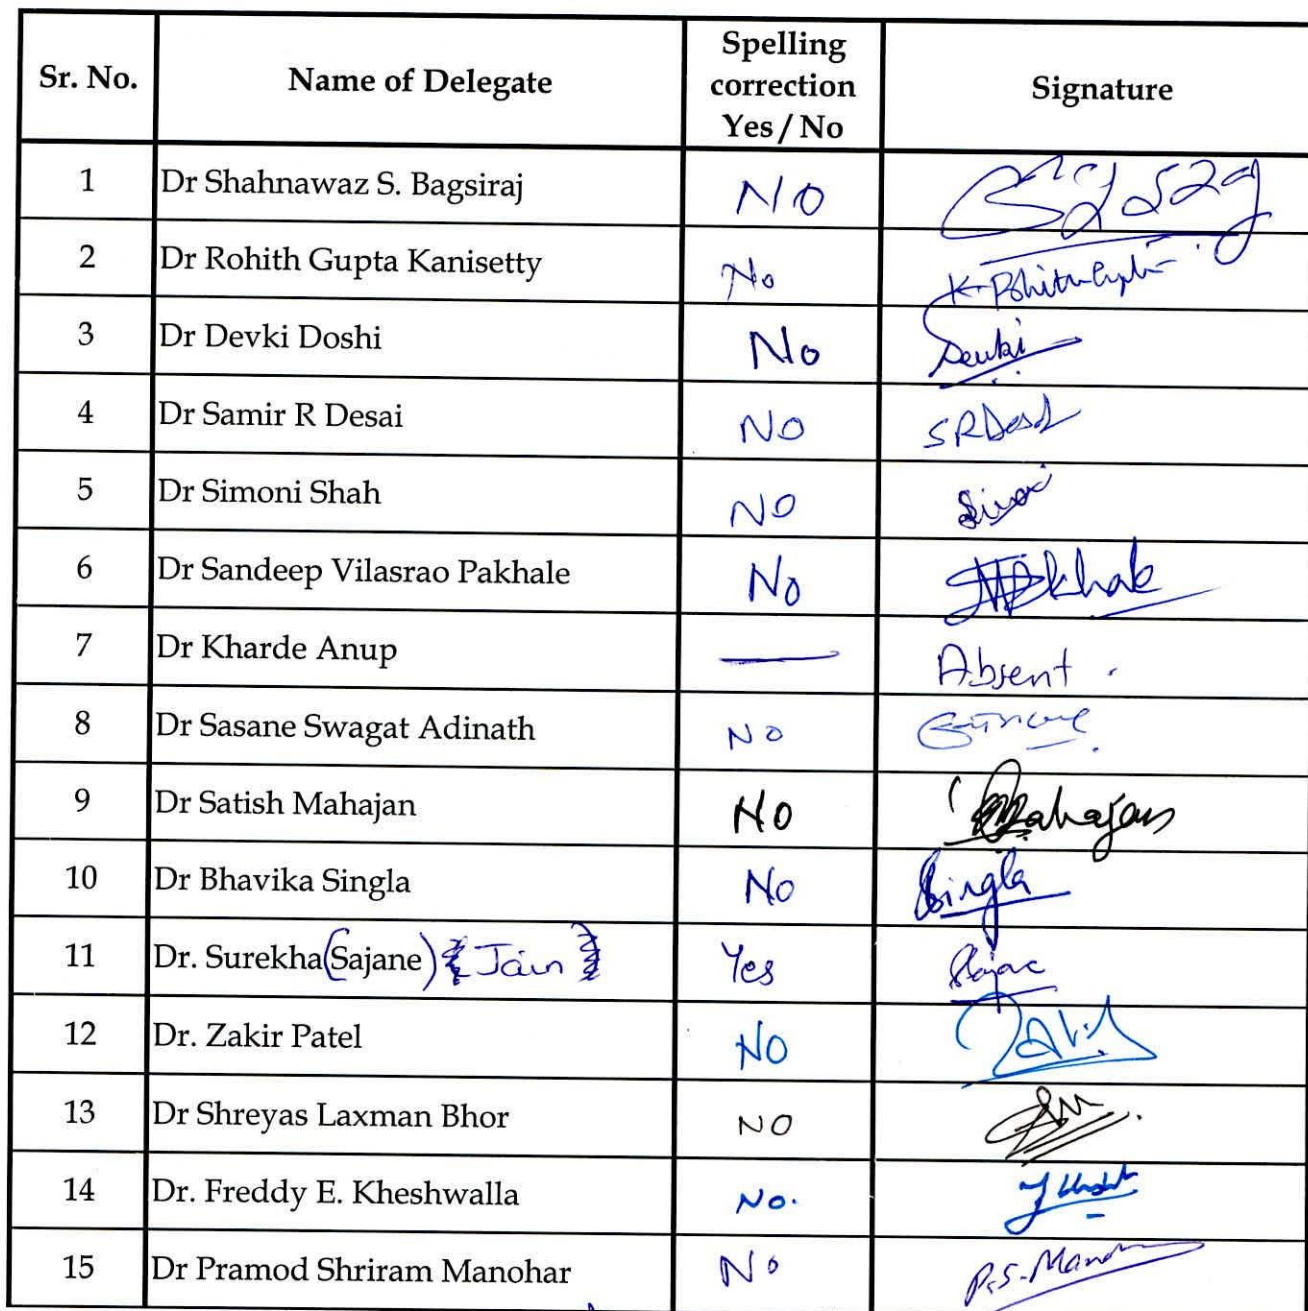 Sr. No. Name of Delegate Spelling correction Yes / No Signature
1 Dr Shahnawaz S. Bagsiraj NO
2 Dr Rohith Gupta Kanisetty No K. Rohith Gupta
3 Dr Devki Doshi No Devki
4 Dr Samir R Desai NO SRDesai
5 Dr Simoni Shah NO
6 Dr Sandeep Vilasrao Pakhale No
7 Dr Kharde Anup — Absent .
8 Dr Sasane Swagat Adinath NO
9 Dr Satish Mahajan NO Mahajan
10 Dr Bhavika Singla No Singla
11 Dr. Surekha (Sajane) { Jain } Yes
12 Dr. Zakir Patel NO
13 Dr Shreyas Laxman Bhor NO
14 Dr. Freddy E. Kheshwalla No.
15 Dr Pramod Shriram Manohar No P.S. Manohar